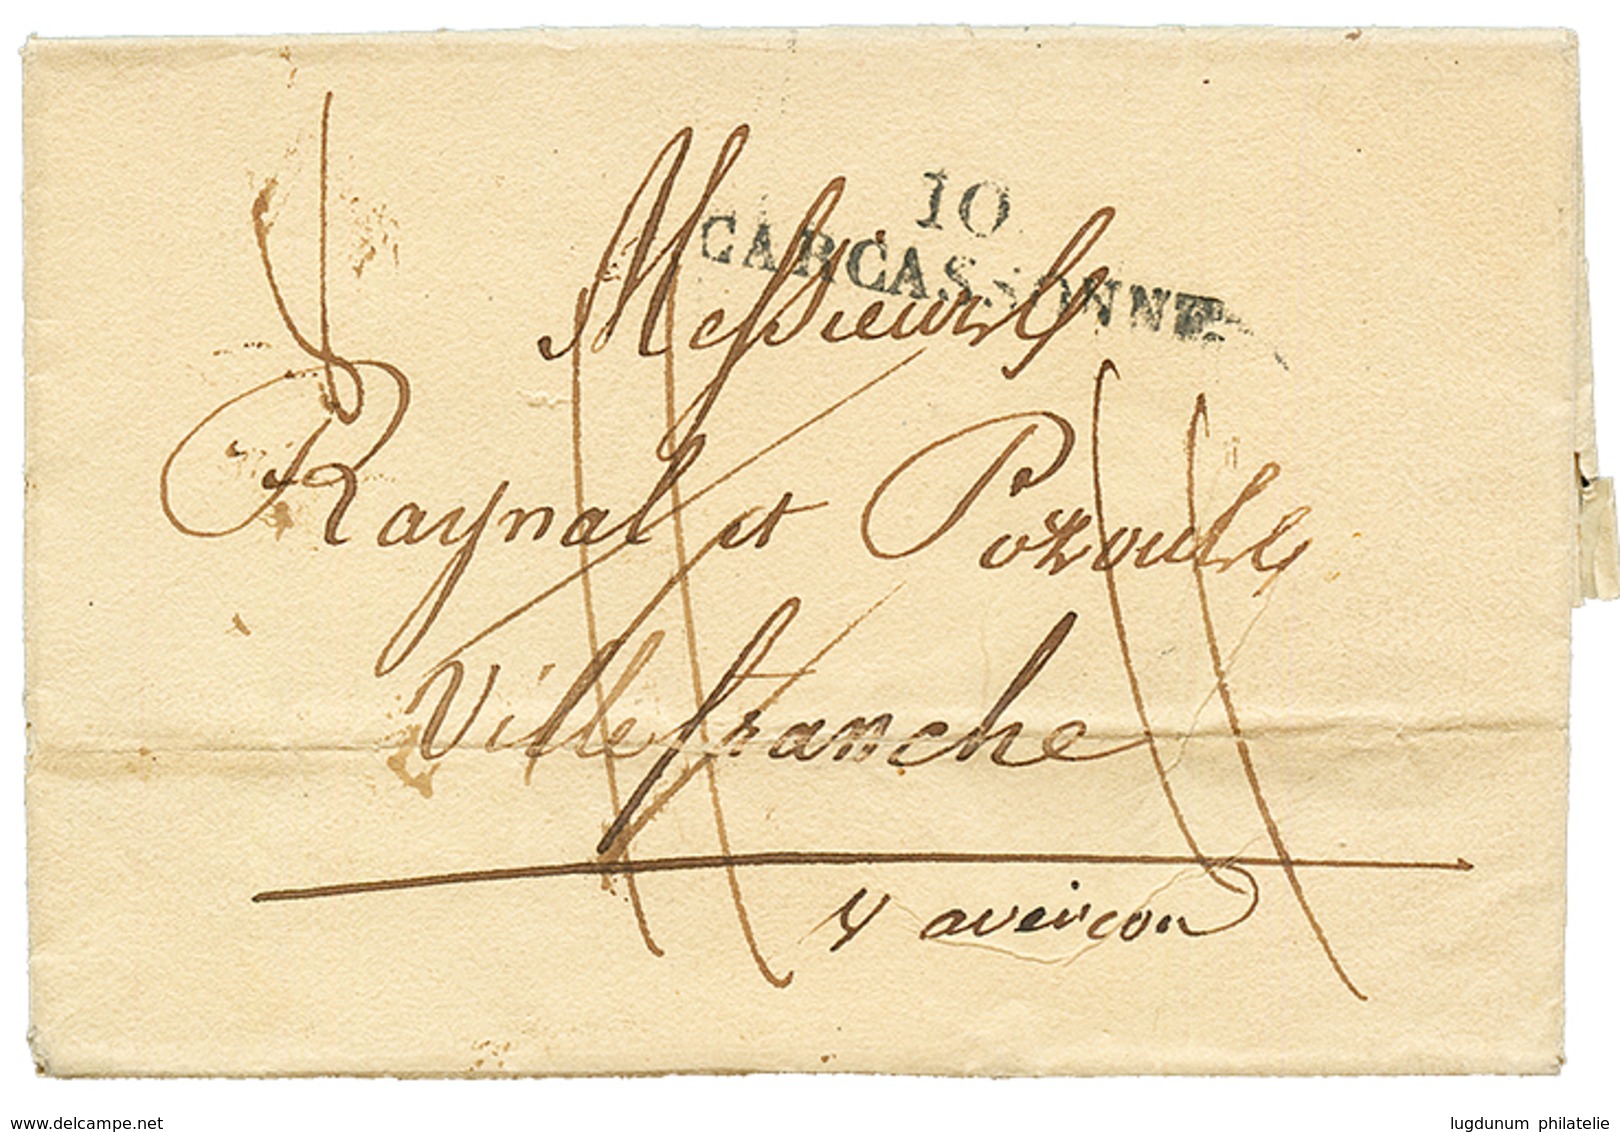 10
CARCASSONNE
Messieurs
Raynal et Pozouls
Villefranche
aveiron
delcampe.net
lugdunum philatelie